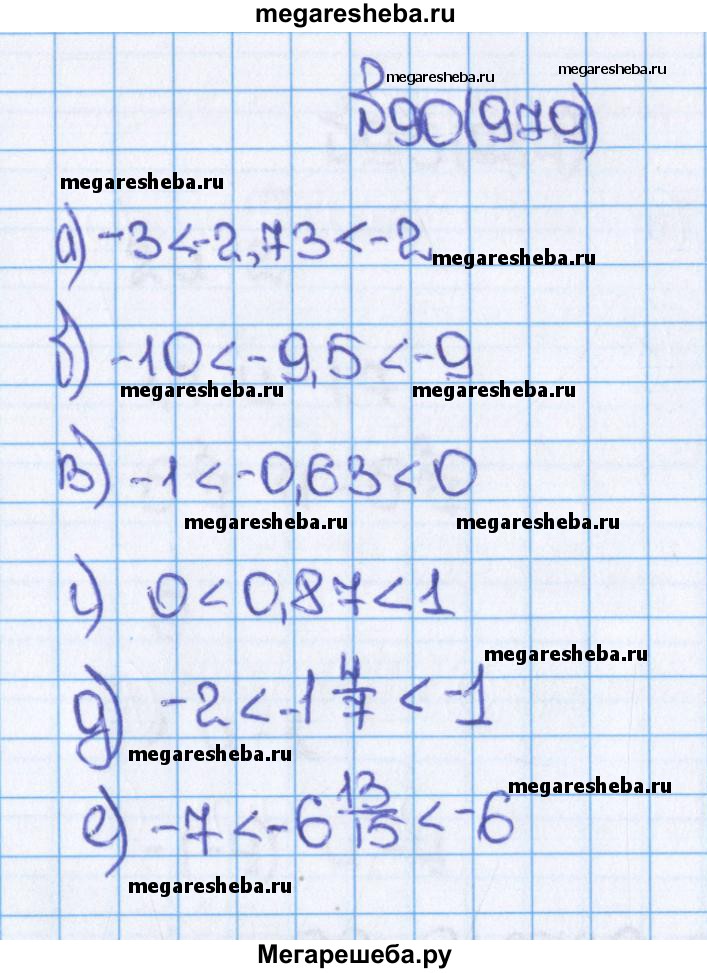 megaresheba.ru
megaresheba.ru
megaresheba.ru
№90(979)
megaresheba.ru
а) -3 < -2,73 < -2
megaresheba.ru
б) -10 < -9,5 < -9
megaresheba.ru megaresheba.ru
в) -1 < -0,63 < 0
megaresheba.ru megaresheba.ru
г) 0 < 0,87 < 1
megaresheba.ru
д) -2 < -1 4/7 < -1
megaresheba.ru
megaresheba.ru
е) -7 < -6 13/15 < -6
megaresheba.ru
Мегарешеба.ру